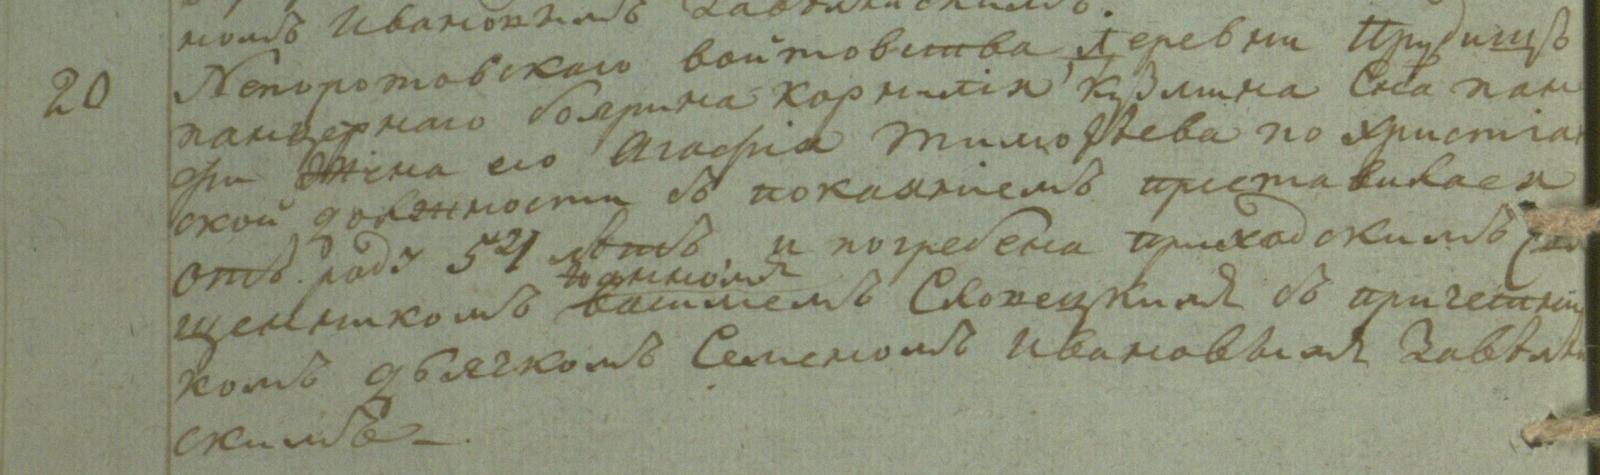 номъ Ивановымъ Завѣлискимъ.
20 Непоротовскаго войтовства Деревни Прудищъ
панцернаго боярина Корнилія Кузмина Сна пан
фи Жена его Агафія Тимоѳѣева по христіан
ской должности съ покаяніемъ преставиласа
отъ роду 52 лѣтъ и погребена приходскимъ Свя
Іоанномъ
щенникомъ василемъ Слопецкимъ съ причетни
комъ дьячкомъ Семеномъ Ивановымъ Завѣли
скимъ